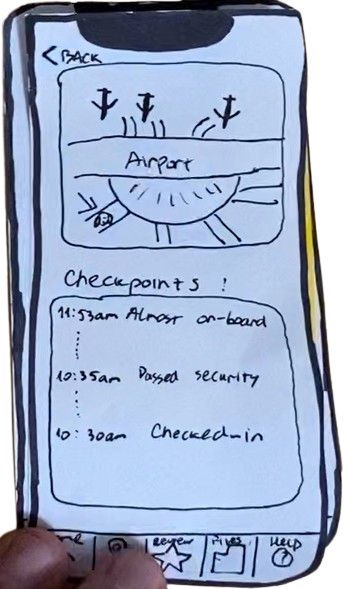 < BACK
Airport
Checkpoints !
11:53am Almost on-board
10:35am Passed security
10:30am Checked-in
Review
Help